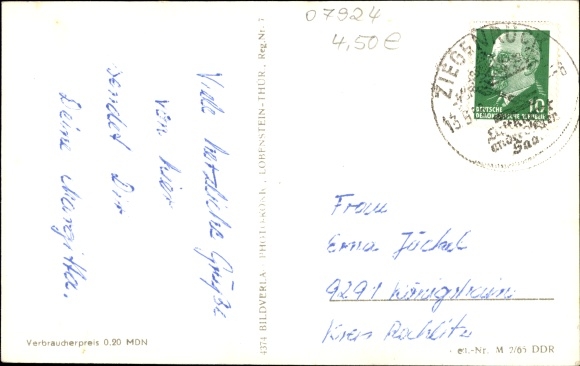 07924
4,50€
Viele herzliche Grüße
von hier
sendet Dir
Deine Margitta.
Verbraucherpreis 0.20 MDN
4374 BILDVERLAG PHOTO-KÖNIG, LOBENSTEIN-THÜR., Reg.Nr. 1
ZIEGENRÜCK
13.5
DEUTSCHE
DEMOKRATISCHE REPUBLIK
10
Frau
Erna Jäckel
9291 Königshain
Kreis Rochlitz
-Nr. M 2/65 DDR